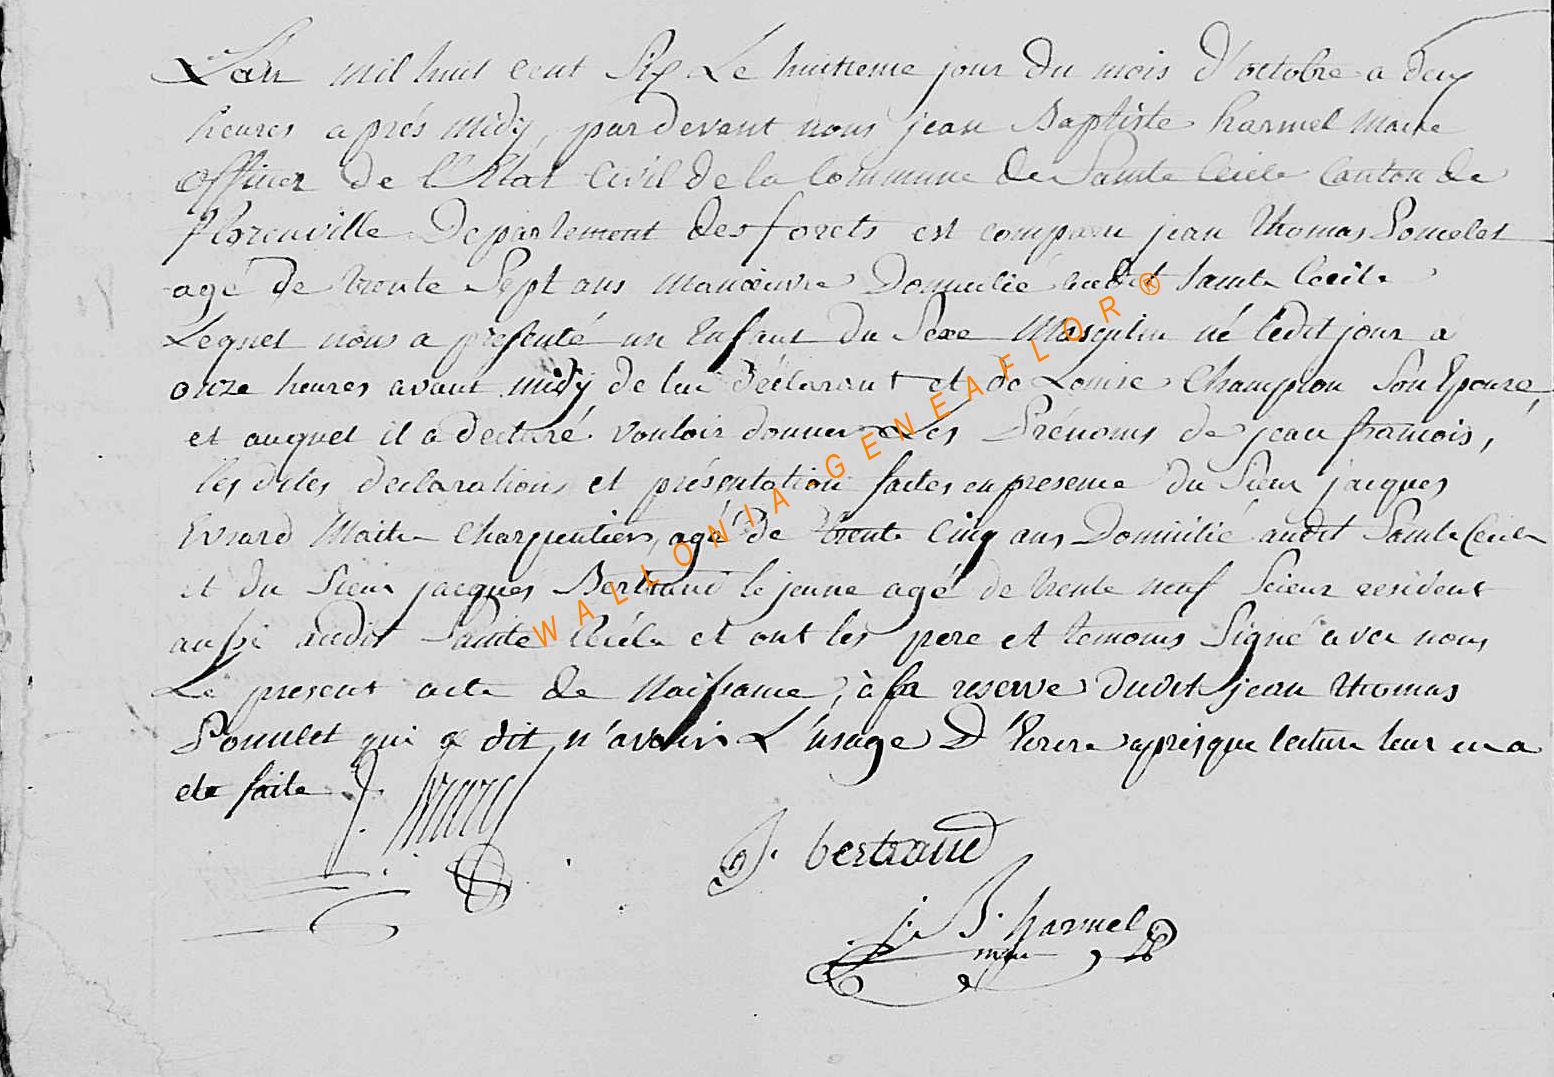 L'an mil huit cent Six Le huitieme jour du mois d'octobre a deux
heures aprés midy, pardevant nous jean Baptiste harmel maire
officier de l'Etat Civil de la Commune de Sainte Cecile Canton de
florenville Departement des forets est comparu jean thomas Poncelet
agé de trente Sept ans manoeuvre Domicilié audit Sainte Cecile
Lequel nous a présenté un Enfant du Sexe Masculin né ledit jour a
onze heures avant midy de lui déclarant et de Louise Champion Son Epouse,
et auquel il a déclaré vouloir donner Les Prénoms de jean francois,
les dites declarations et présentation faites en presence du Sieur jacques
Evrard Maitre Charpentier, agé de trente Cinq ans Domicilié audit Sainte Cecile
et du Sieur jacques Bertrand le jeune agé de trente neuf Scieur resident
aussi audit Sainte Cecile et ont les pere et temoins Signé avec nous
Le present acte de Naissance, à la reserve dudit jean thomas
Poncelet qui a dit n'avoir L'usage D'Ecrire apres que lecture leur en a
ete faite
J. Evrard
J. bertrand
j. B. harmel
maire
WALLONIA-GENEAFLOR®